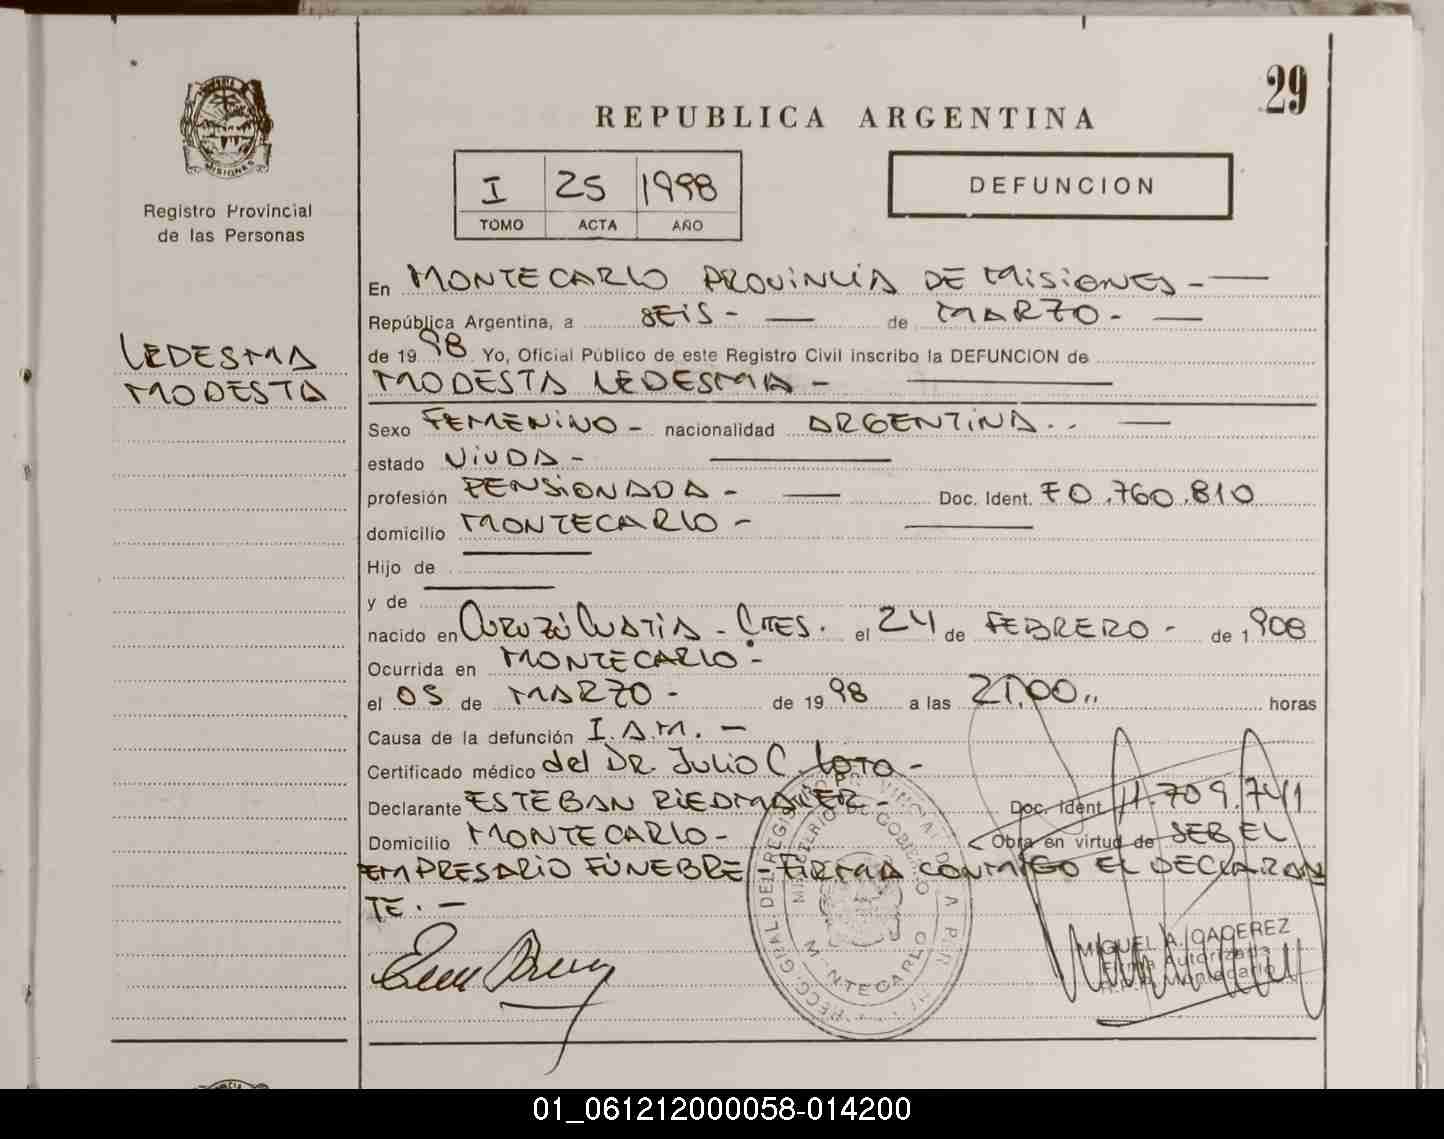 29
REPUBLICA ARGENTINA
MISIONES
Registro Provincial
de las Personas
I 25 1998
TOMO ACTA AÑO
DEFUNCION
LEDESMA
MODESTA
En MONTECARLO PROVINCIA DE MISIONES -
República Argentina, a SEIS - de MARZO -
de 19 98 Yo, Oficial Público de este Registro Civil inscribo la DEFUNCION de
MODESTA LEDESMA -
Sexo FEMENINO - nacionalidad ARGENTINA..
estado VIUDA -
profesión PENSIONADA - Doc. Ident. F0.760.810
domicilio MONTECARLO -
Hijo de
y de
nacido en CURUZÚ CUATIA - CTES. el 24 de FEBRERO - de 1.908
Ocurrida en MONTECARLO -
el 05 de MARZO - de 19 98 a las 21,00.. horas
Causa de la defunción I.A.M. -
Certificado médico del DR. JULIO C. LOTO -
Declarante ESTEBAN RIEDMAIER - Doc. Ident. 11.709.741
Domicilio MONTECARLO - Obra en virtud de SER EL
EMPRESARIO FÚNEBRE - FIRMA CONMIGO EL DECLARAN
TE. -
MINISTERIO DE GOBIERNO
MONTECARLO
MIGUEL A. CACEREZ
Firma Autorizada
Montecarlo
01_061212000058-014200